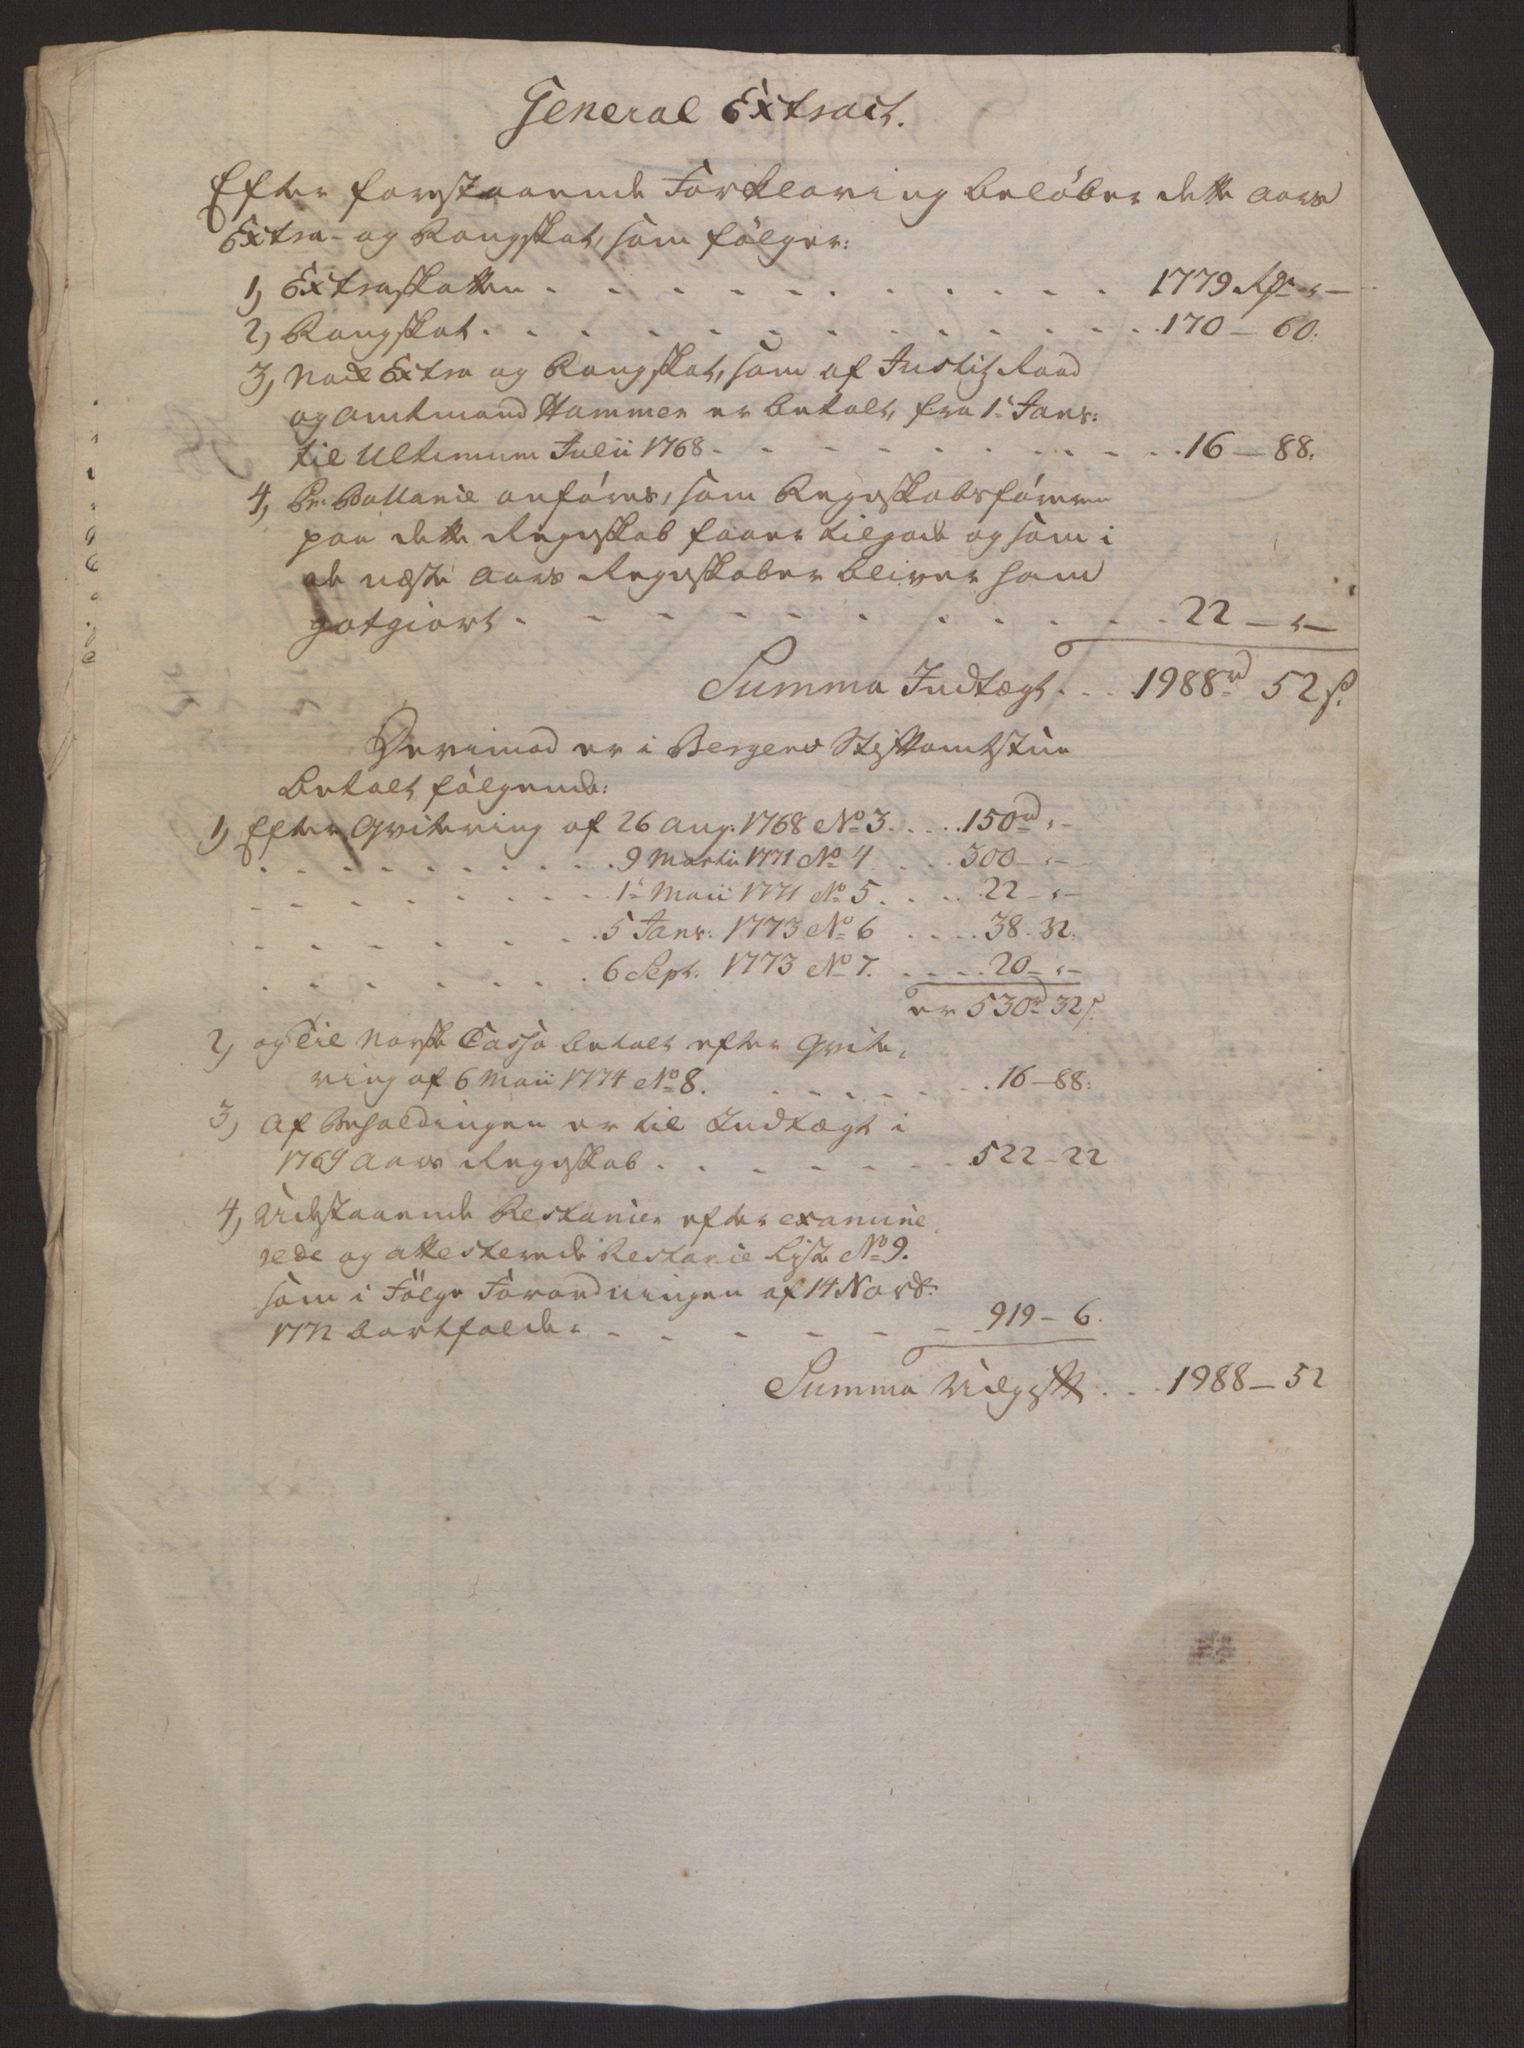 General Extract.
Efter forestaaende Forklaring beløber dette Aars
Extra- og Rangskat, som følger:
1, Extraskatten . . . . . . . . . . . 1779 Rdr „ —
2, Rangskat . . . . . . . . . . . . . 170 — 60.
3, Nock Extra og Rangskat, som af Justitz Raad
og Amtmand Hammer er betalt, fra 1te Janr:
til Ultimum Julii 1768 . . . . . . . . . 16 — 88.
4, Pr. Ballance anføres, som Regnskabsføreren
paa dette Regnskab faaer tilgode og som i
de næste Aars Regnskaber bliver ham
gotgiort . . . . . . . . . . 22 — „ —
Summa Indtægt . . . 1988rd 52 s.
Derimod er i Bergens Stiftamtstue
betalt følgende:
1, Efter Qvitering af 26 Aug. 1768 No 3. . . . . 150rd „ —
. . . . . . . . . . 9 Martii 1771 No 4 . . . . 300 — „ —
. . . . . . . . . . 1te Maii 1771 No 5. . . . . 22 — „ —
. . . . . . . . 5 Janr: 1773 No 6 . . . . 38. 32.
. . . . . . . . 6 Sept. 1773 No 7. . . . . 20 — „ —
er 530rd 32 s.
2, og Til Norske Cassa betalt efter Qvite-
ring af 6 Maii 1774 No 8. . . . . . . . 16 — 88.
3, Af Beholdingen er til Indtægt i
1769 Aars Regnskab . . . . . . . . 522 — 22
4, Udestaaende Restancer efter examine-
rede og attesterede Restance Liste No 9.
som i Følge Forordningen af 14 Novb:
1772 bortfalder . . . . . . . 919 — 6.
Summa Udgift . . . 1988 — 52